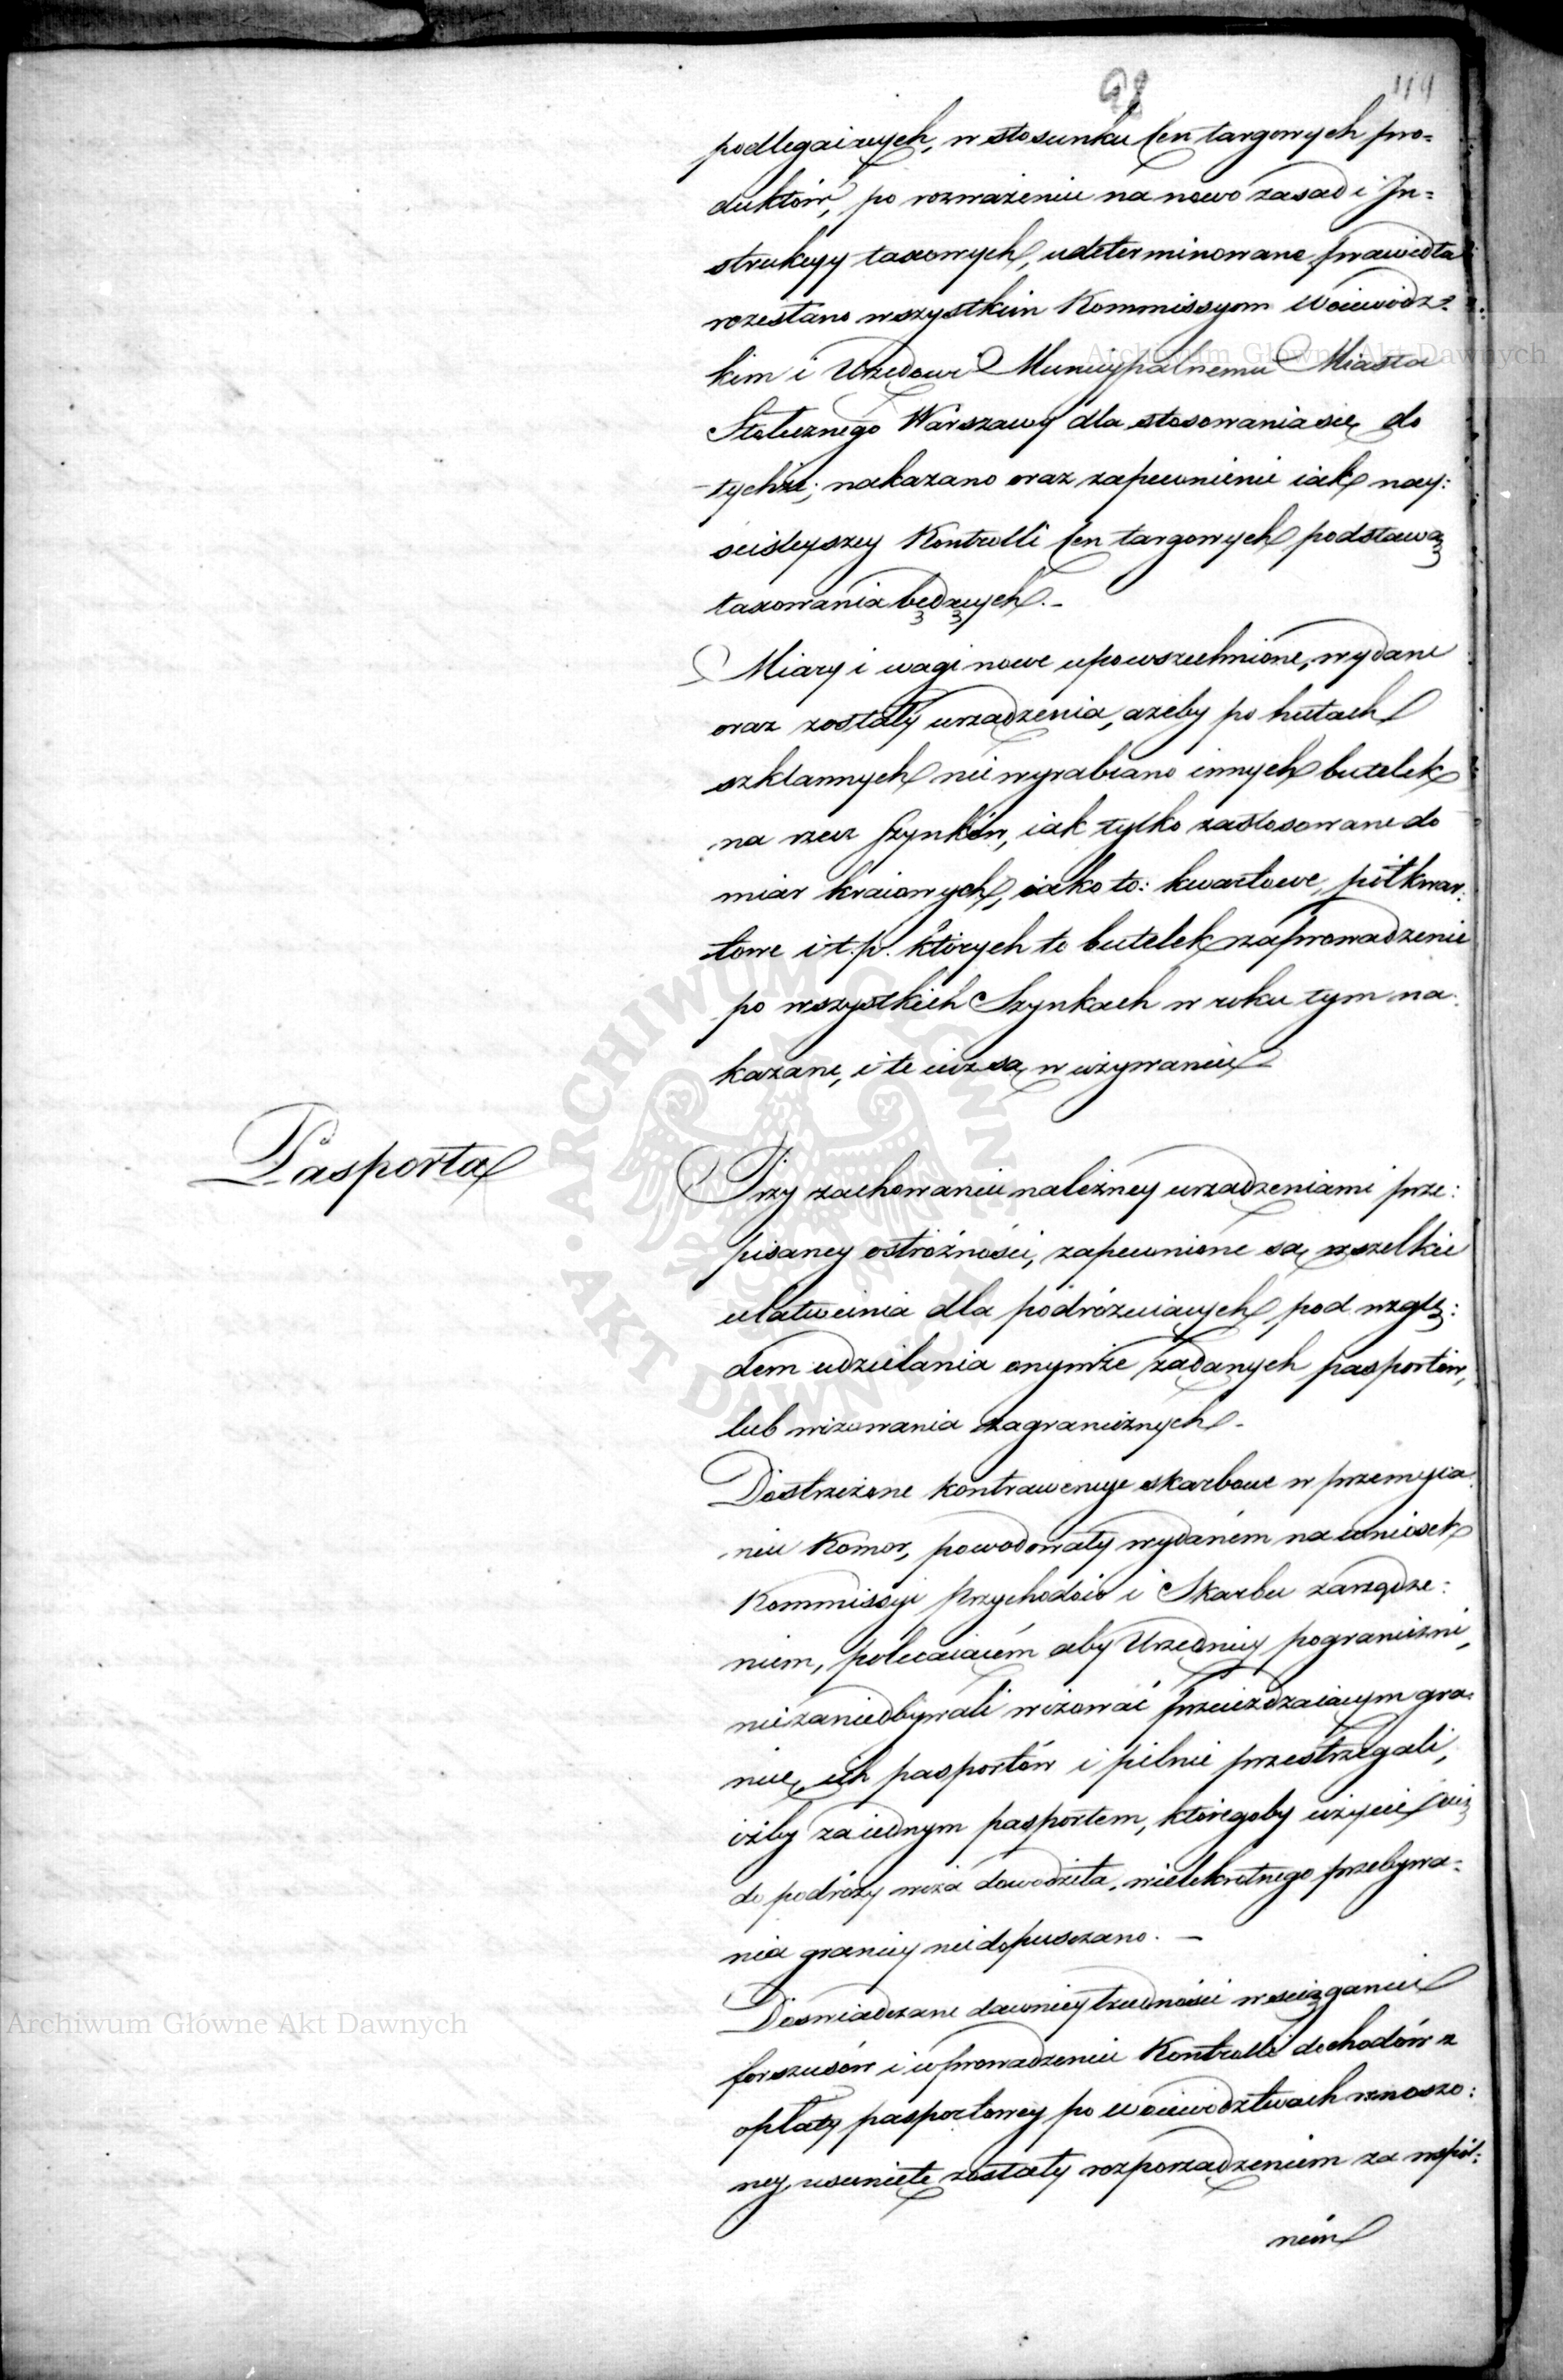 98
119
podlegaiących, w stosunku Cen targowych pro=
duktów, po rozważeniu na nowo zasad i In=
strukcyy taxowych, udeterminowane prawidła
rozesłano wszystkim Kommissyom Woiewódz=
kim i Urzędowi Municypalnemu Miasta
Stołecznego Warszawy dla stosowania się do
tychże; nakazano oraz zapewnienie iak nay:
ścisleyszey Kontrolli Cen targowych podstawą
taxowania będących.-
Miary i wagi nowe upowszechnione, wydane
oraz zostały urządzenia, ażeby po hutach
szklannych nie wyrabiano innych butelek
na rzecz Szynków, iak tylko zastosowane do
miar kraiowych, iako to: kwartowe, półkwar:
towe i t.p. których to butelek zaprowadzenie
po wszystkich Szynkach w roku tym na:
kazane, i te iuż są w używaniu
Pasporta
Przy zachowaniu należney urządzeniami prze:
pisaney ostrożności, zapewnione są wszelkie
ułatwienia dla podróżuiących pod wzglę:
dem udzielania onymże żądanych pasportów,
lub wizowania zagranicznych.
Dostrzeżone kontrawencye skarbowe w przemyca
niu Komor, powodowały wydaniem na wniosek
Kommissyi Przychodów i Skarbu zarządze:
niem, polecaiącém aby Urzędnicy pograniczni,
nie zaniedbywali wizować przeieżdzaiącym gra:
nicę ich pasportów i pilnie przestrzegali,
iżby za iednym pasportem, któregoby użycie iuż
do podróży wiza dowodziła, wielokrotnego przebywa=
nia granicy nie dopuszczano. —
Doswiadczane dawniey trudności w ściąganiu
forszusów i w prowadzeniu Kontrolli dochodów z
opłaty pasportowey po Woiewództwach wnoszo:
ney, usunięte zostały rozporządzeniem za wspól:
ném
Archiwum Główne Akt Dawnych
Archiwum Główne Akt Dawnych
ARCHIWUM GŁÓWNE · AKT DAWNYCH ·